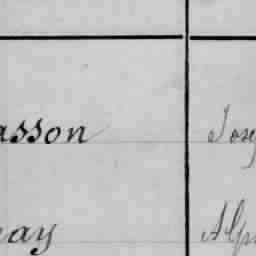 asson Jose
nay Alp